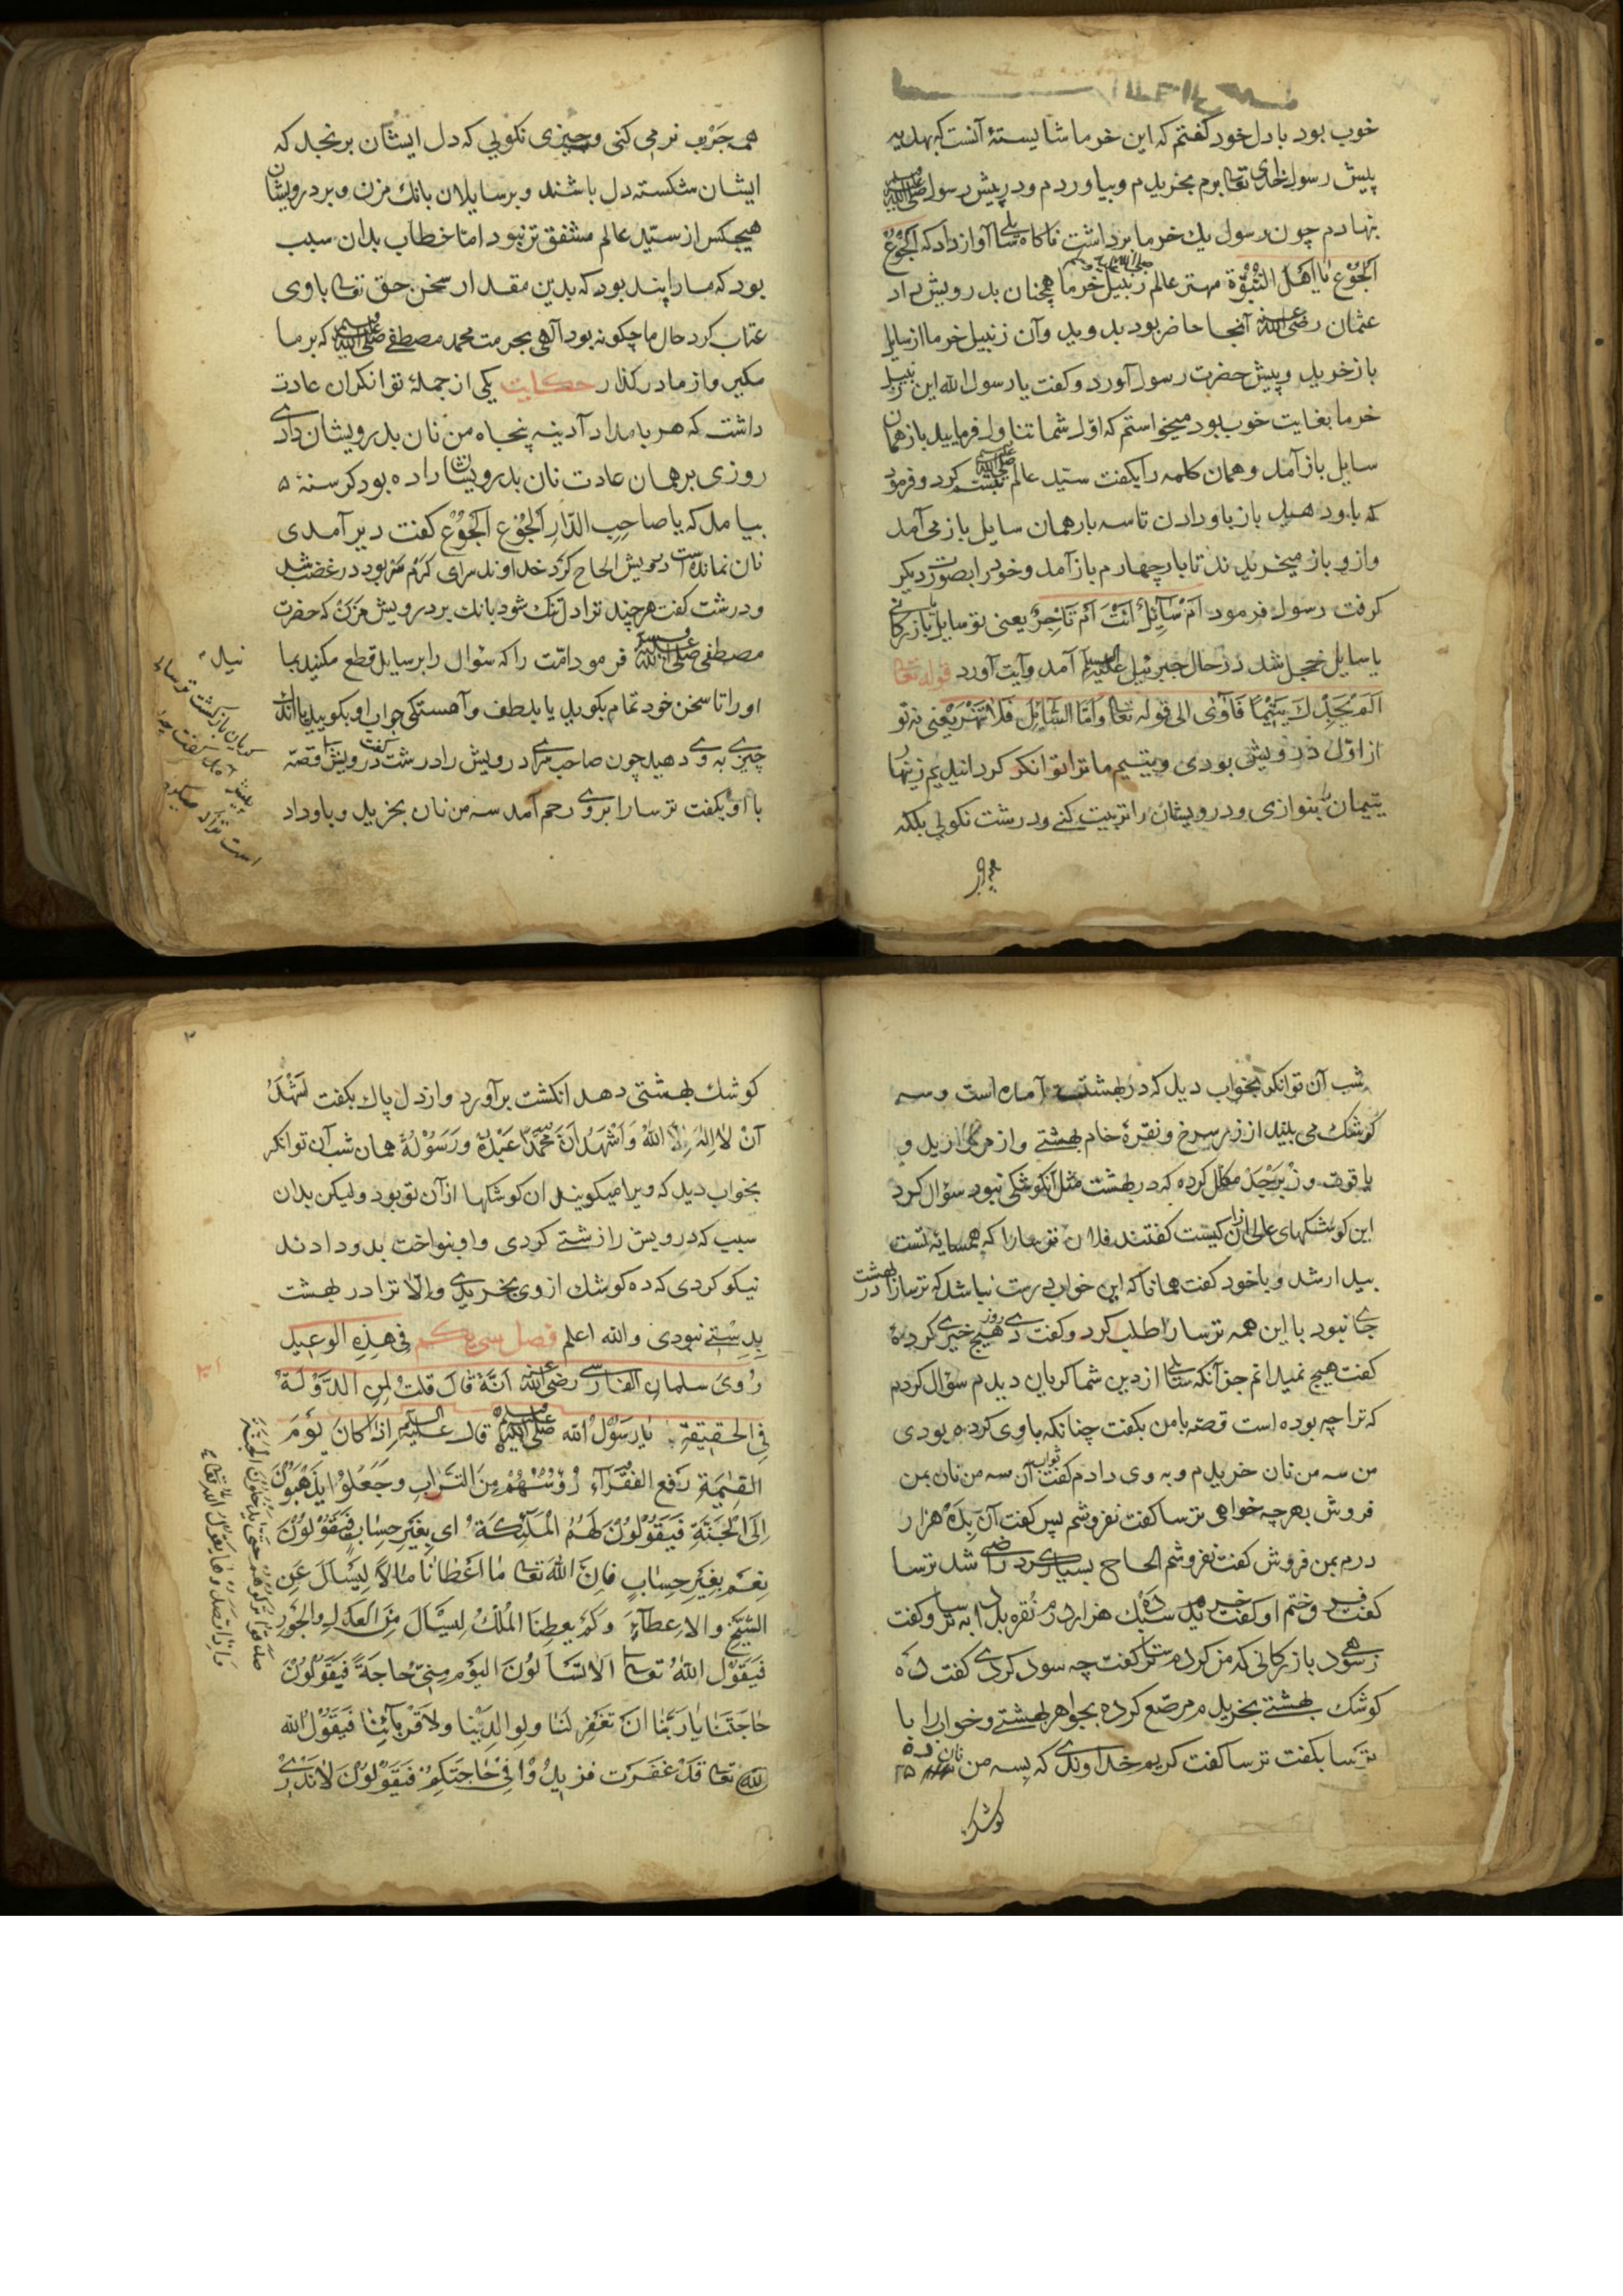 خوب بود با دل خود گفتم که این خرما شایستهٔ آنست که بهدیه
پیش رسول خدای تعا برم بخریدم و بیاوردم و در پیش رسول صلی الله علیه وسلم
بنهادم چون رسول یك خرما برداشت ناکاه سایلی آواز داد که اَلْجُوْعُ
اَلْجُوْع یَا اَهْلَ النُّبُوَّة مهتر عالم زنبیل خرما همچنان بدرویش داد
عثمان رضی الله عنه آنجا حاضر بود بدوید وآن زنبیل خرما از سایل
باز خرید و پیش حضرت رسول آورد و کفت یا رسول الله این زنبیل
خرما بغایت خوب بود میخواستم که اوّل شما تناول فرمایید باز همان
سایل باز آمد و همان کلمه را بکفت سیّد عالم صلی الله تبسّم کرد و فرمود
که باو دهید باز باو دادن تا سه بار همان سایل باز می آمد
و ازو باز میخریدند تا بار چهارم باز آمد و خود را بصورت دیکر
کرفت رسول فرمود اَمْ سَآئِلٌ اَنْتَ اَمْ تَاجِرٌ یعنی تو سایل یا بازرکانی
یا سایل خجل شد در حال جبرئیل علیه السلم آمد وآیت آورد قوله تعا
اَلَمْ یَجِدْكَ یَتِیْمًا فَآوٰی الی قوله تعا وَاَمَّا السَّآئِلَ فَلَا تَنْهَرْ یعنی نه تو
از اوّل درویش بودی و یتیم ما ترا توانکر کردانیدیم زینهار
یتیمان را بنوازی و درویشان را تربیت کنے و درشت نکویی بلکه
همه چرب نرمی کنی و چیزی نکویی که دل ایشان برنجد که
ایشان شکسته دل باشند و بر سایلان بانك مزن و بر درویشان
هیچکس از سیّد عالم مشفق تر نبود امّا خطاب بدان سبب
بود که ما را پند بود که بدین مقدار سخن حق تعا با وی
عتاب کرد حال ما چکونه بود آلهی بحرمت محمد مصطفے صلی الله علیه وسلم که بر ما
مکیر و از ما در کذار حکایت یکی از جملهٔ توانکران عادت
داشت که هر بامداد آدینه پنجاه من نان بدرویشان دادے
روزی بر همان عادت نان بدرویشان داده بود کرسنهٔ
بیامد که یا صاحِبِ الدَّارِ اَلْجُوْع اَلْجُوْع کفت دیر آمدی
نان نمانده است درویش الحاح کرد خداوند سرای کرم تر بود در غضب شد
و درشت کفت هر چند ترا دل تنك شود بانك بر درویش مزن که حضرت
مصطفی صلی الله علیه وسلم فرمود امّت را که سؤال را بر سایل قطع مکنید
او را تا سخن خود تمام بکوید یا بلطف و آهستکی جواب او بکویید یا اندك
چیزے به وے دهید چون صاحب سرای درویش را درشت کفت درویش قصّه
با او بکفت ترسا را بروے رحم آمد سه من نان بخرید و باو داد
کریان بازکشت ترسا
شب آن توانکر بخواب دید که در بهشت آماده است و سه
کوشك می بیند از زر سرخ و نقرهٔ خام بهشتے و از مروارید و
یاقوت و زَبَرْجَدْ مکلل کرده که در بهشت مثل آن کوشکی نبود سؤال کرد
این کوشکهای عالی از آن کیست کفتند فلان ترسا را که همسایهٔ تست
بیدار شد و با خود کفت همانا که این خواب درست نباشد که ترسا را در بهشت
جاے نبود با این همه ترسا را طلب کرد و کفت دے روز هیچ خیرے کردهٔ
کفت هیچ نمیدانم جز آنکه سایلی از در شما کریان دیدم سؤال کردم
که ترا چه بوده است قصّه با من بکفت چنانکه با وی کرده بودی
من سه من نان خریدم و به وی دادم کفت ثواب آن سه من نان بمن
فروش بهر چه خواهی ترسا کفت نفروشم پس کفت آن بدَهْ هزار
درم بمن فروش کفت نفروشم الحاح بسیار کرد راضی شد ترسا
کفت فروختم او کفت خریدم سبك ده هزار درم نقره بدان ترسا به و کفت
زهے سود بازرکانی که من کردم ترسا کفت چه سود کردی کفت ده
کوشك بهشتے بخریدم مرصّع کرده بجواهر بهشتے و خواب را با
ترسا بکفت ترسا کفت کریم خداوندے که بسه من نان ده
کوشك
کوشك بهشتی دهد انکشت برآورد و از دل پاك بکفت اَشْهَدُ
اَنْ لٰا اِلٰهَ اِلَّا اللهُ وَاَشْهَدُ اَنَّ مُحَمَّدًا عَبْدُهُ وَرَسُوْلُهُ همان شب آن توانکر
بخواب دید که ویرا میکویند ان کوشکها از آن تو بود ولیکن بدان
سبب که درویش را زشتے کردی و او بنواخت بدو دادند
نیکو کردی که ده کوشك از وی بخریدے والّا ترا در بهشت
بِدِسْتے نبودی والله اعلم فصل سی یکم فی هٰذِهِ الوعید
رُویَ سلمان الفارسی رضی الله عنه اَنَّهٗ قَالَ قلتُ لِمَنِ الدَّوْلَةُ
فِی الحقیقةِ یٰا رَسُوْلَ الله صلی الله علیه وسلم قالَ علیه السلم اِذَا کَانَ یَوْمَ
القِیٰمَةِ رَفع الفقَرَآءِ رُؤُسَهُمْ مِنَ التُّرَابِ وجَعَلُوْا یَذْهَبُوْنَ
اِلَی الْجَنَّةِ فَیَقُوْلُوْنَ لَهُمُ الْمَلٰئِکَةُ ای بِغَیْرِ حِسٰابٍ فَیَقُوْلُوْنَ
نِعَمْ بِغَیْرِ حِسٰابٍ فَاِنَّ اللهَ تعا مٰا اَعْطٰانٰا مٰالاً لِیَسْأَلَ عَنِ
الشُّحِّ والاِعطآءِ وَلَمْ یعطِنَا المُلْكَ لِیَسْأَلَ مِنَ الْعَدْلِ والجَوْرِ
فَیَقُوْلُ اللهُ تعا اَلَا تَسْأَلُوْنَ الیَوْمَ مِنِّیْ حٰاجَةً فَیَقُوْلُوْنَ
حٰاجَتَنٰا یٰا رَبَّنَا اَنْ تَغْفِرَ لَنٰا ولِوالِدَیْنٰا ولِاَقْرِبٰآئِنٰا فَیَقُوْلُ الله
تعا قَدْ غَفَرْتُ فَزِیْدُوْا فِیْ حٰاجَتِکُمْ فَیَقُوْلُوْنَ لٰا نَدْرِیْ